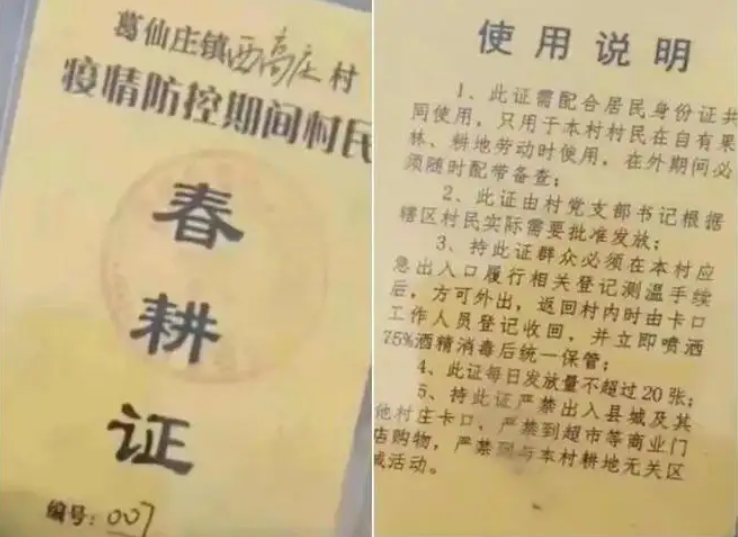 葛仙庄镇西高庄村
疫情防控期间村民
春
耕
证
编号：007
使用说明
1、此证需配合居民身份证共
同使用，只用于本村村民在自有果
林、耕地劳动时使用，在外期间必
须随时配带备查；
2、此证由村党支部书记根据
辖区村民实际需要批准发放；
3、持此证群众必须在本村应
急出入口履行相关登记测温手续
后，方可外出，返回村内时由卡口
工作人员登记收回，并立即喷洒
75%酒精消毒后统一保管；
4、此证每日发放量不超过20张；
5、持此证严禁出入县城及其
他村庄卡口、严禁到超市等商业门
店购物，严禁到与本村耕地无关区
域活动。